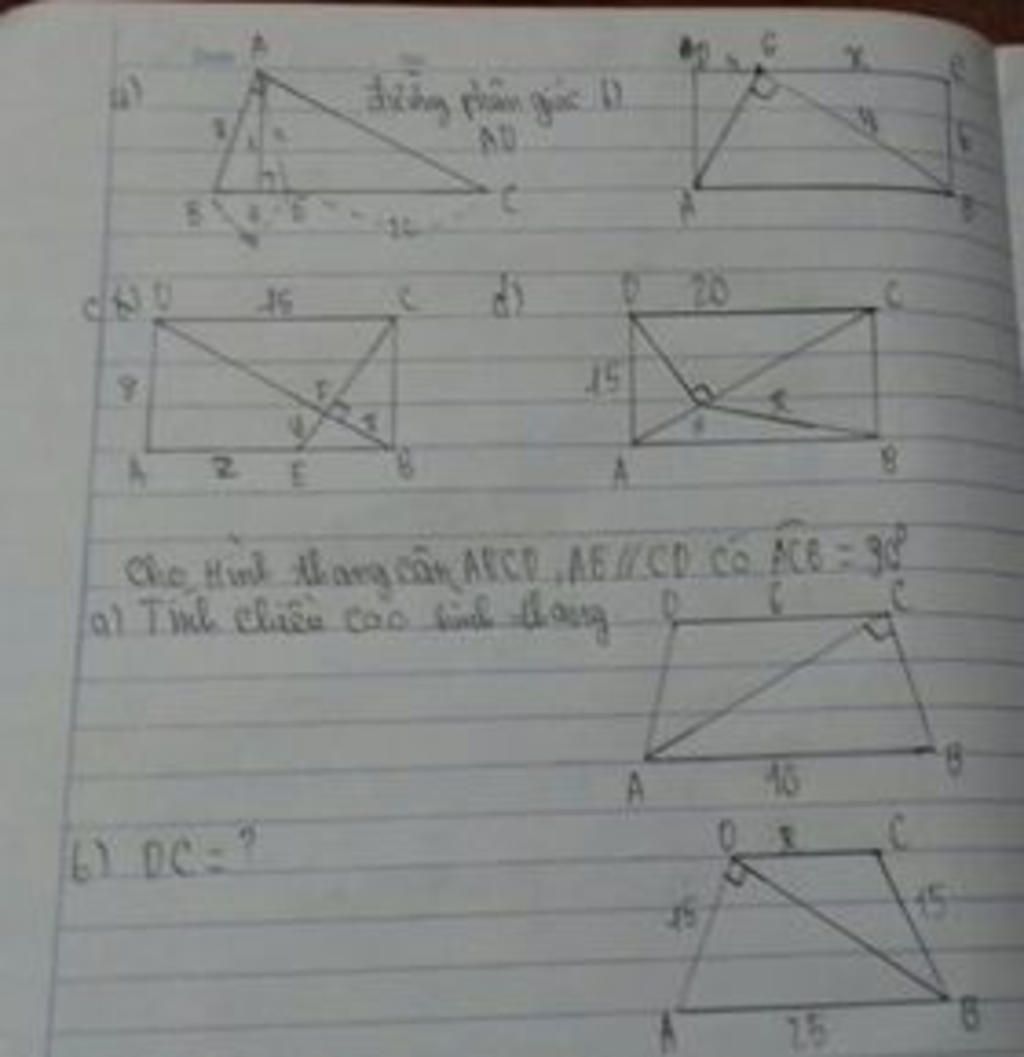 a)
A
đường phân giác
AD
B
C
b)
G
x
y
6
A
B
c)
D
15
C
A
z
E
B
x
y
d)
D
20
C
15
A
B
x
Cho Hình thang cân ABCD, AB // CD có ACB = 90°
a) Tính chiều cao hình thang
D
6
C
A
10
B
b) DC = ?
D
x
C
15
15
A
25
B